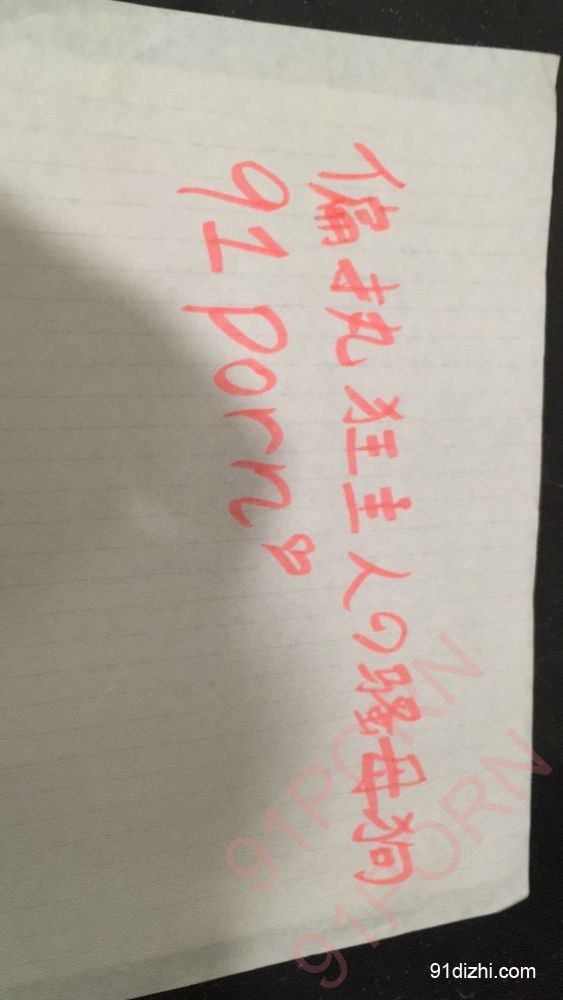 偏执狂主人の骚母狗
91porn♡
91PORN
91PORN
91dizhi.com